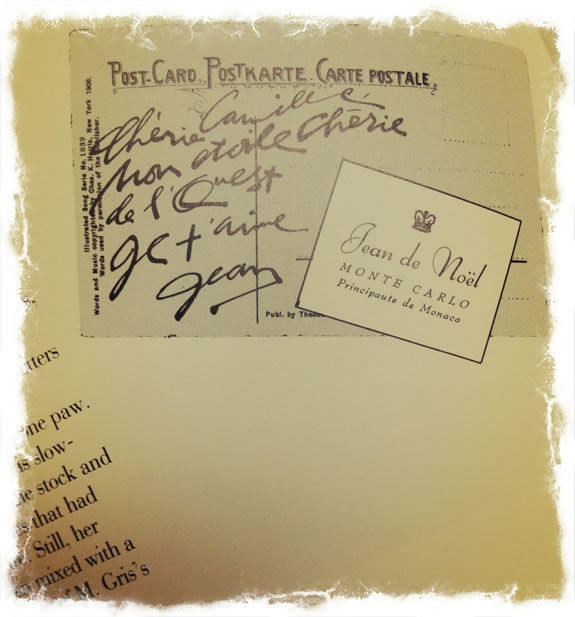 POST-CARD. POSTKARTE. CARTE POSTALE.
Chérie Camille
Mon étoile Chérie
de l'Ouest
Je t'aime
Jean
Illustrated Song Serie No. 1839
Words and Music copyrighted by Chas. K. Harris, New York 1906.
Words used by permission of the Publisher.
Publ. by
Jean de Noël
MONTE CARLO
Principaute de Monaco
tters
ne paw.
is slow-
stock and
that had
Still, her
mixed with a
M. Gris's